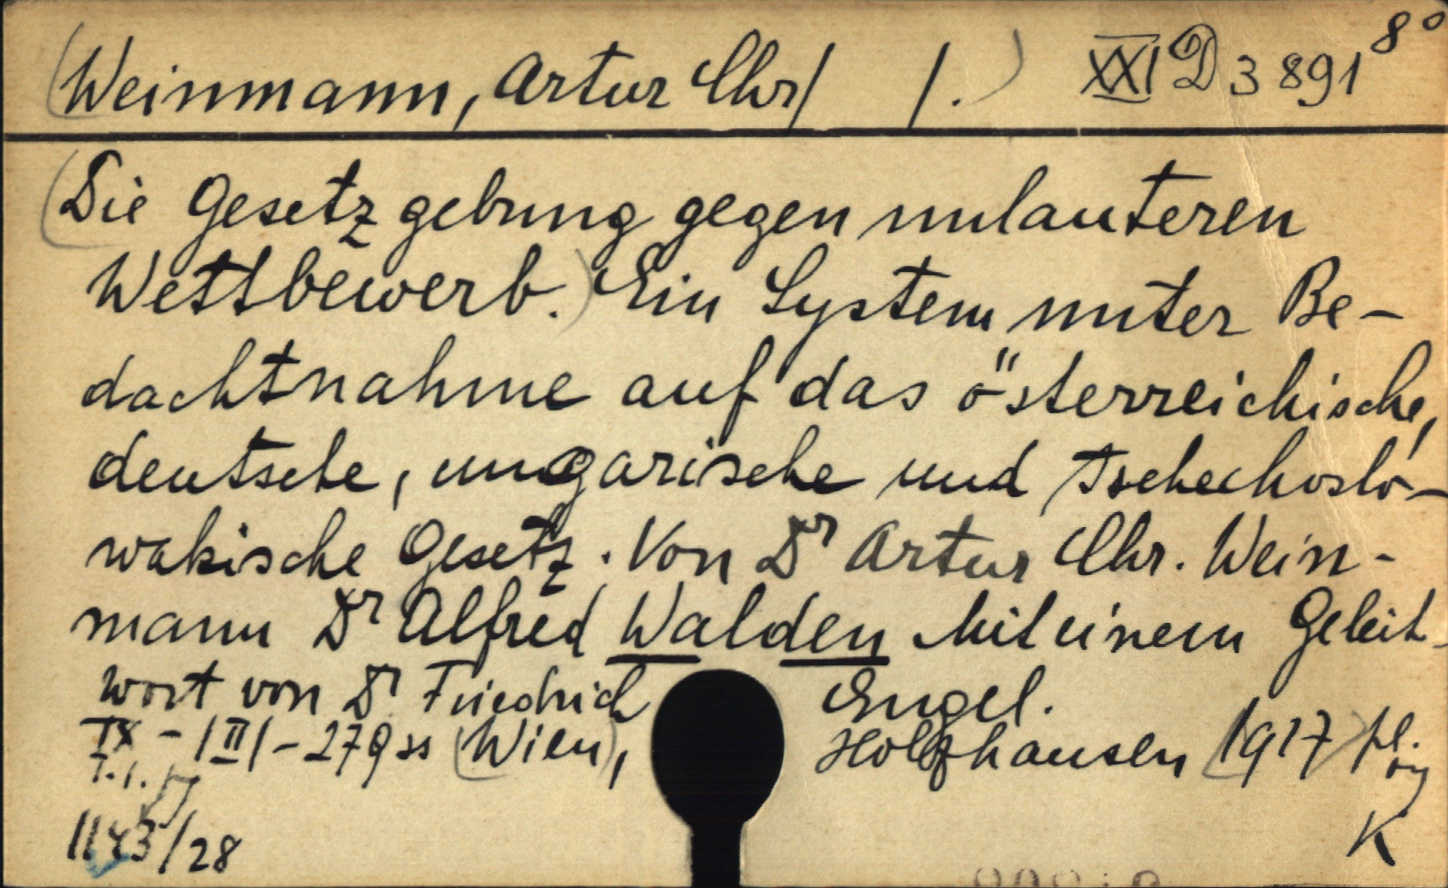 (Weinmann, Artur Chr/ /.) XXI D 3 891 8°
(Die Gesetzgebung gegen unlauteren
Wettbewerb.) Ein System unter Be-
dachtnahme auf das österreichische,
deutsche, ungarische und tschechoslo-
wakische Gesetz. Von Dr Artur Chr. Wein-
mann Dr Alfred Walden Mit einem Geleit-
wort von Dr Friedrich Engel.
IX - /III/ - 279 ss (Wien), Holzhausen (1917) pł.
1143/28 K